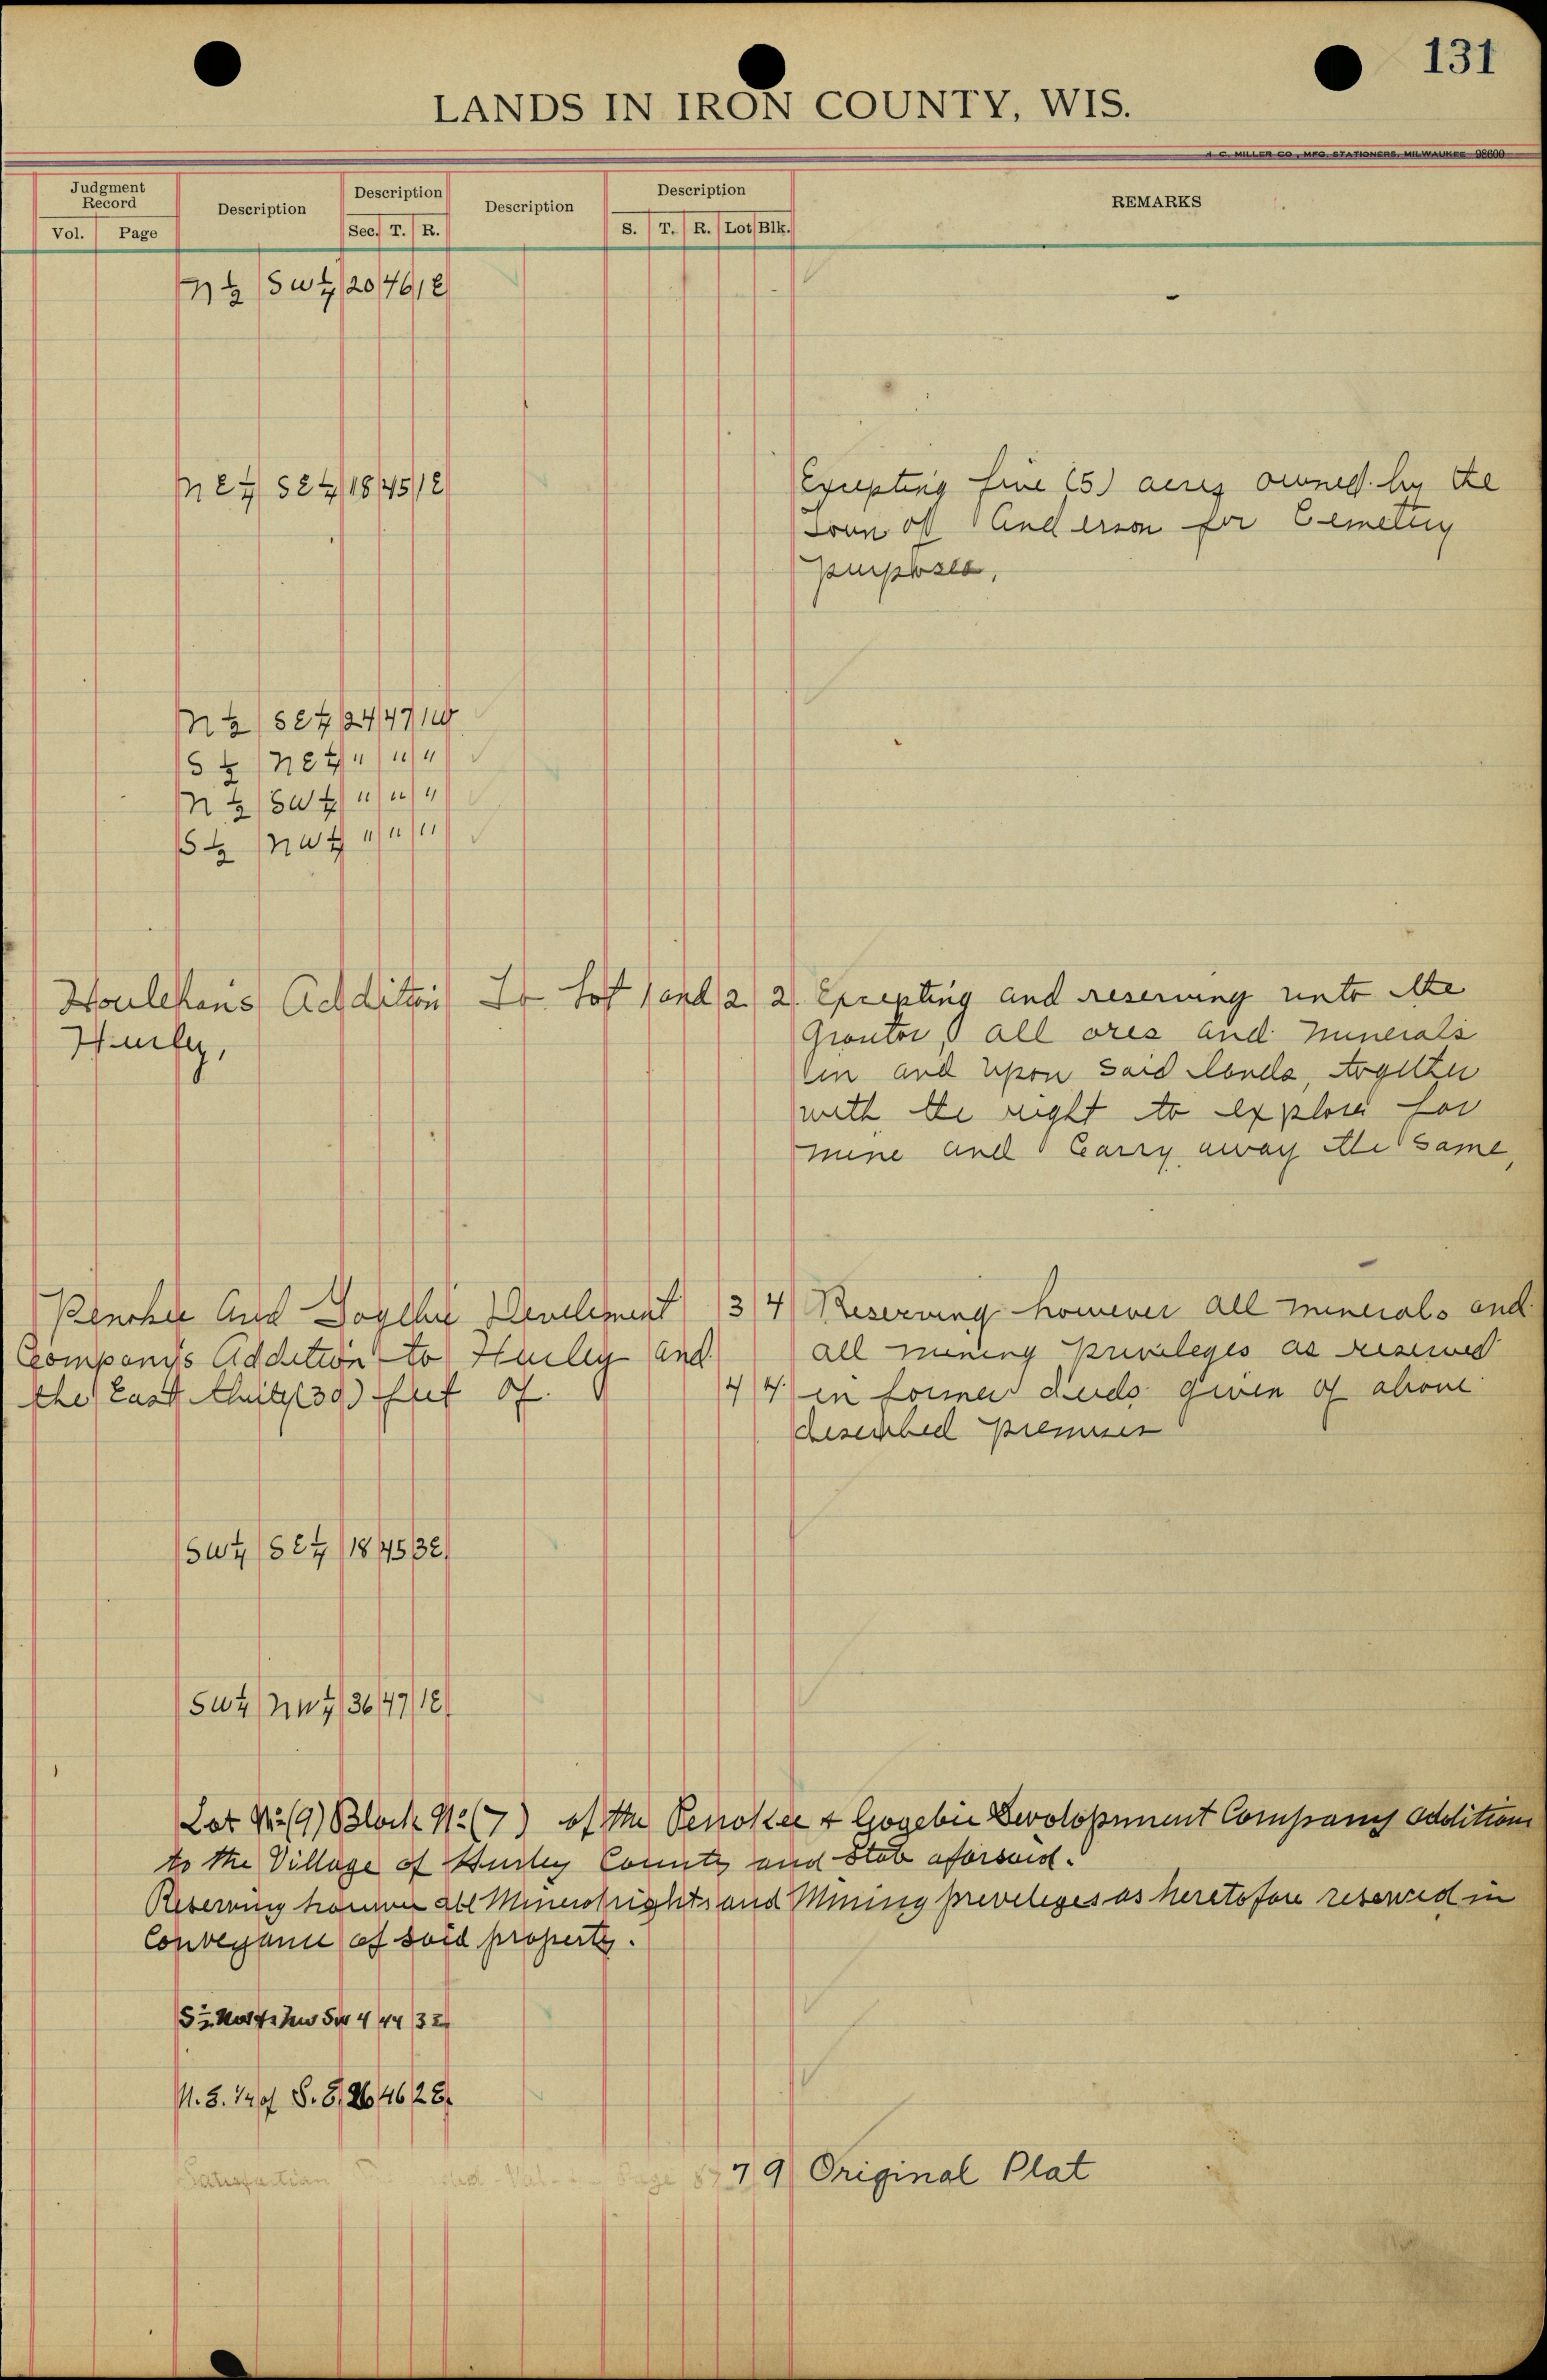 131
LANDS IN IRON COUNTY, WIS.
H. C. MILLER CO., MFG. STATIONERS, MILWAUKEE 98600
Judgment Record Description Description Description Description REMARKS
Vol. Page Sec. T. R. S. T. R. Lot Blk.
N ½ SW ¼ 20 46 1E
NE ¼ SE ¼ 18 45 1E Excepting five (5) acres owned by the
Town of Anderson for Cemetery
purposes,
N ½ SE ¼ 24 47 1W
S ½ NE ¼ " " "
N ½ SW ¼ " " "
S ½ NW ¼ " " "
Houlehans Addition To Lot 1 and 2 2 Excepting and reserving unto the
Hurley, Grantor, all ores and minerals
in and upon said lands, together
with the right to explore for
mine and carry away the same,
Penokee And Gogebic Develement 3 4 Reserving however all minerals and
Company's Addition to Hurley and all mining privileges as reserved
the East thirty (30) feet of. 4 4 in former deeds given of above
described premises
SW ¼ SE ¼ 18 45 3E
SW ¼ NW ¼ 36 47 1E
Lot No (9) Block No (7) of the Penokee & Gogebic Devolopment Companys addition
to the Village of Hurley County and State aforsaid.
Reserving however all Mineral rights and Mining preveleges as heretofore reserved in
Conveyance of said property.
S ½ 4 44 3E
N. E. 1/4 of S. E. 26 46 2E.
Satisfaction Page 7 9 Original Plat